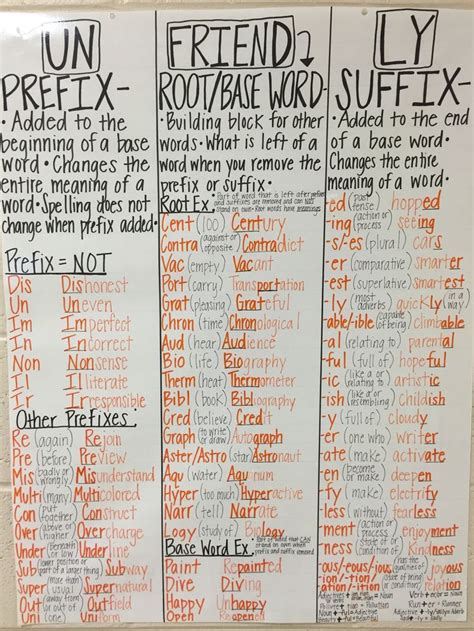 UN
PREFIX-
• Added to the
beginning of a base
word. • Changes the
entire meaning of a
word. • Spelling does not
change when prefix added.
Prefix = NOT
Dis Dishonest
Un Uneven
Im Imperfect
In Incorrect
Non Nonsense
Il Illiterate
Ir Irresponsible
Other Prefixes:
Re (again) Rejoin
Pre (before) Preview
Mis (badly or wrongly) Misunderstand
Multi (many) Multicolored
Con (put together) Construct
Over (above or higher) Overcharge
Under (beneath or low) Underline
Sub (part of a larger thing) Subway
Super (more than usual) Supernatural
Out (away) Outfield
Uni (one or out of) Uniform
FRIEND
ROOT/BASE WORD-
• Building block for other
words. • What is left of a
word when you remove the
prefix or suffix.
Root Ex. • Part of word that is left after prefix
and suffixes are removed and can NOT
stand on own. Root words have meanings
Cent (100) Century
Contra (against or opposite) Contradict
Vac (empty) Vacant
Port (carry) Transportation
Grat (pleasing) Grateful
Chron (time) Chronological
Aud (hear) Audience
Bio (life) Biography
Therm (heat) Thermometer
Bibl (book) Bibliography
Cred (believe) Credit
Graph (to write or draw) Autograph
Aster/Astro (star) Astronaut
Aqu (water)
Hyper (too much) Hyperactive
Narr (tell) Narrate
Logy (study of) Biology
Base Word Ex. • Part of word that CAN
stand on own when
prefix and suffix removed
Paint Repainted
Dive Diving
Happy Unhappy
Open Reopened
LY
SUFFIX-
• Added to the end
of a base word. •
Changes the entire
meaning of a word.
-ed (past tense) hopped
-ing (action or process) seeing
-s/es (plural) cars
-er (comparative) smarter
-est (superlative) smartest
-ly (most adverbs) quickly (in a way)
-able/ible (capable of being) climbable
-al (relating to) parental
-ful (full of) hopeful
-ic (like or relating to) artistic
-ish (like a or resembling) childish
-y (full of) cloudy
-er (one who) writer
-ate (action) activate
-en (become or make) deepen
-fy (make) electrify
-less (without) fearless
-ment (action or process) enjoyment
-ness (condition of) kindness
-ous/-eous/-ious
-ation/-ition